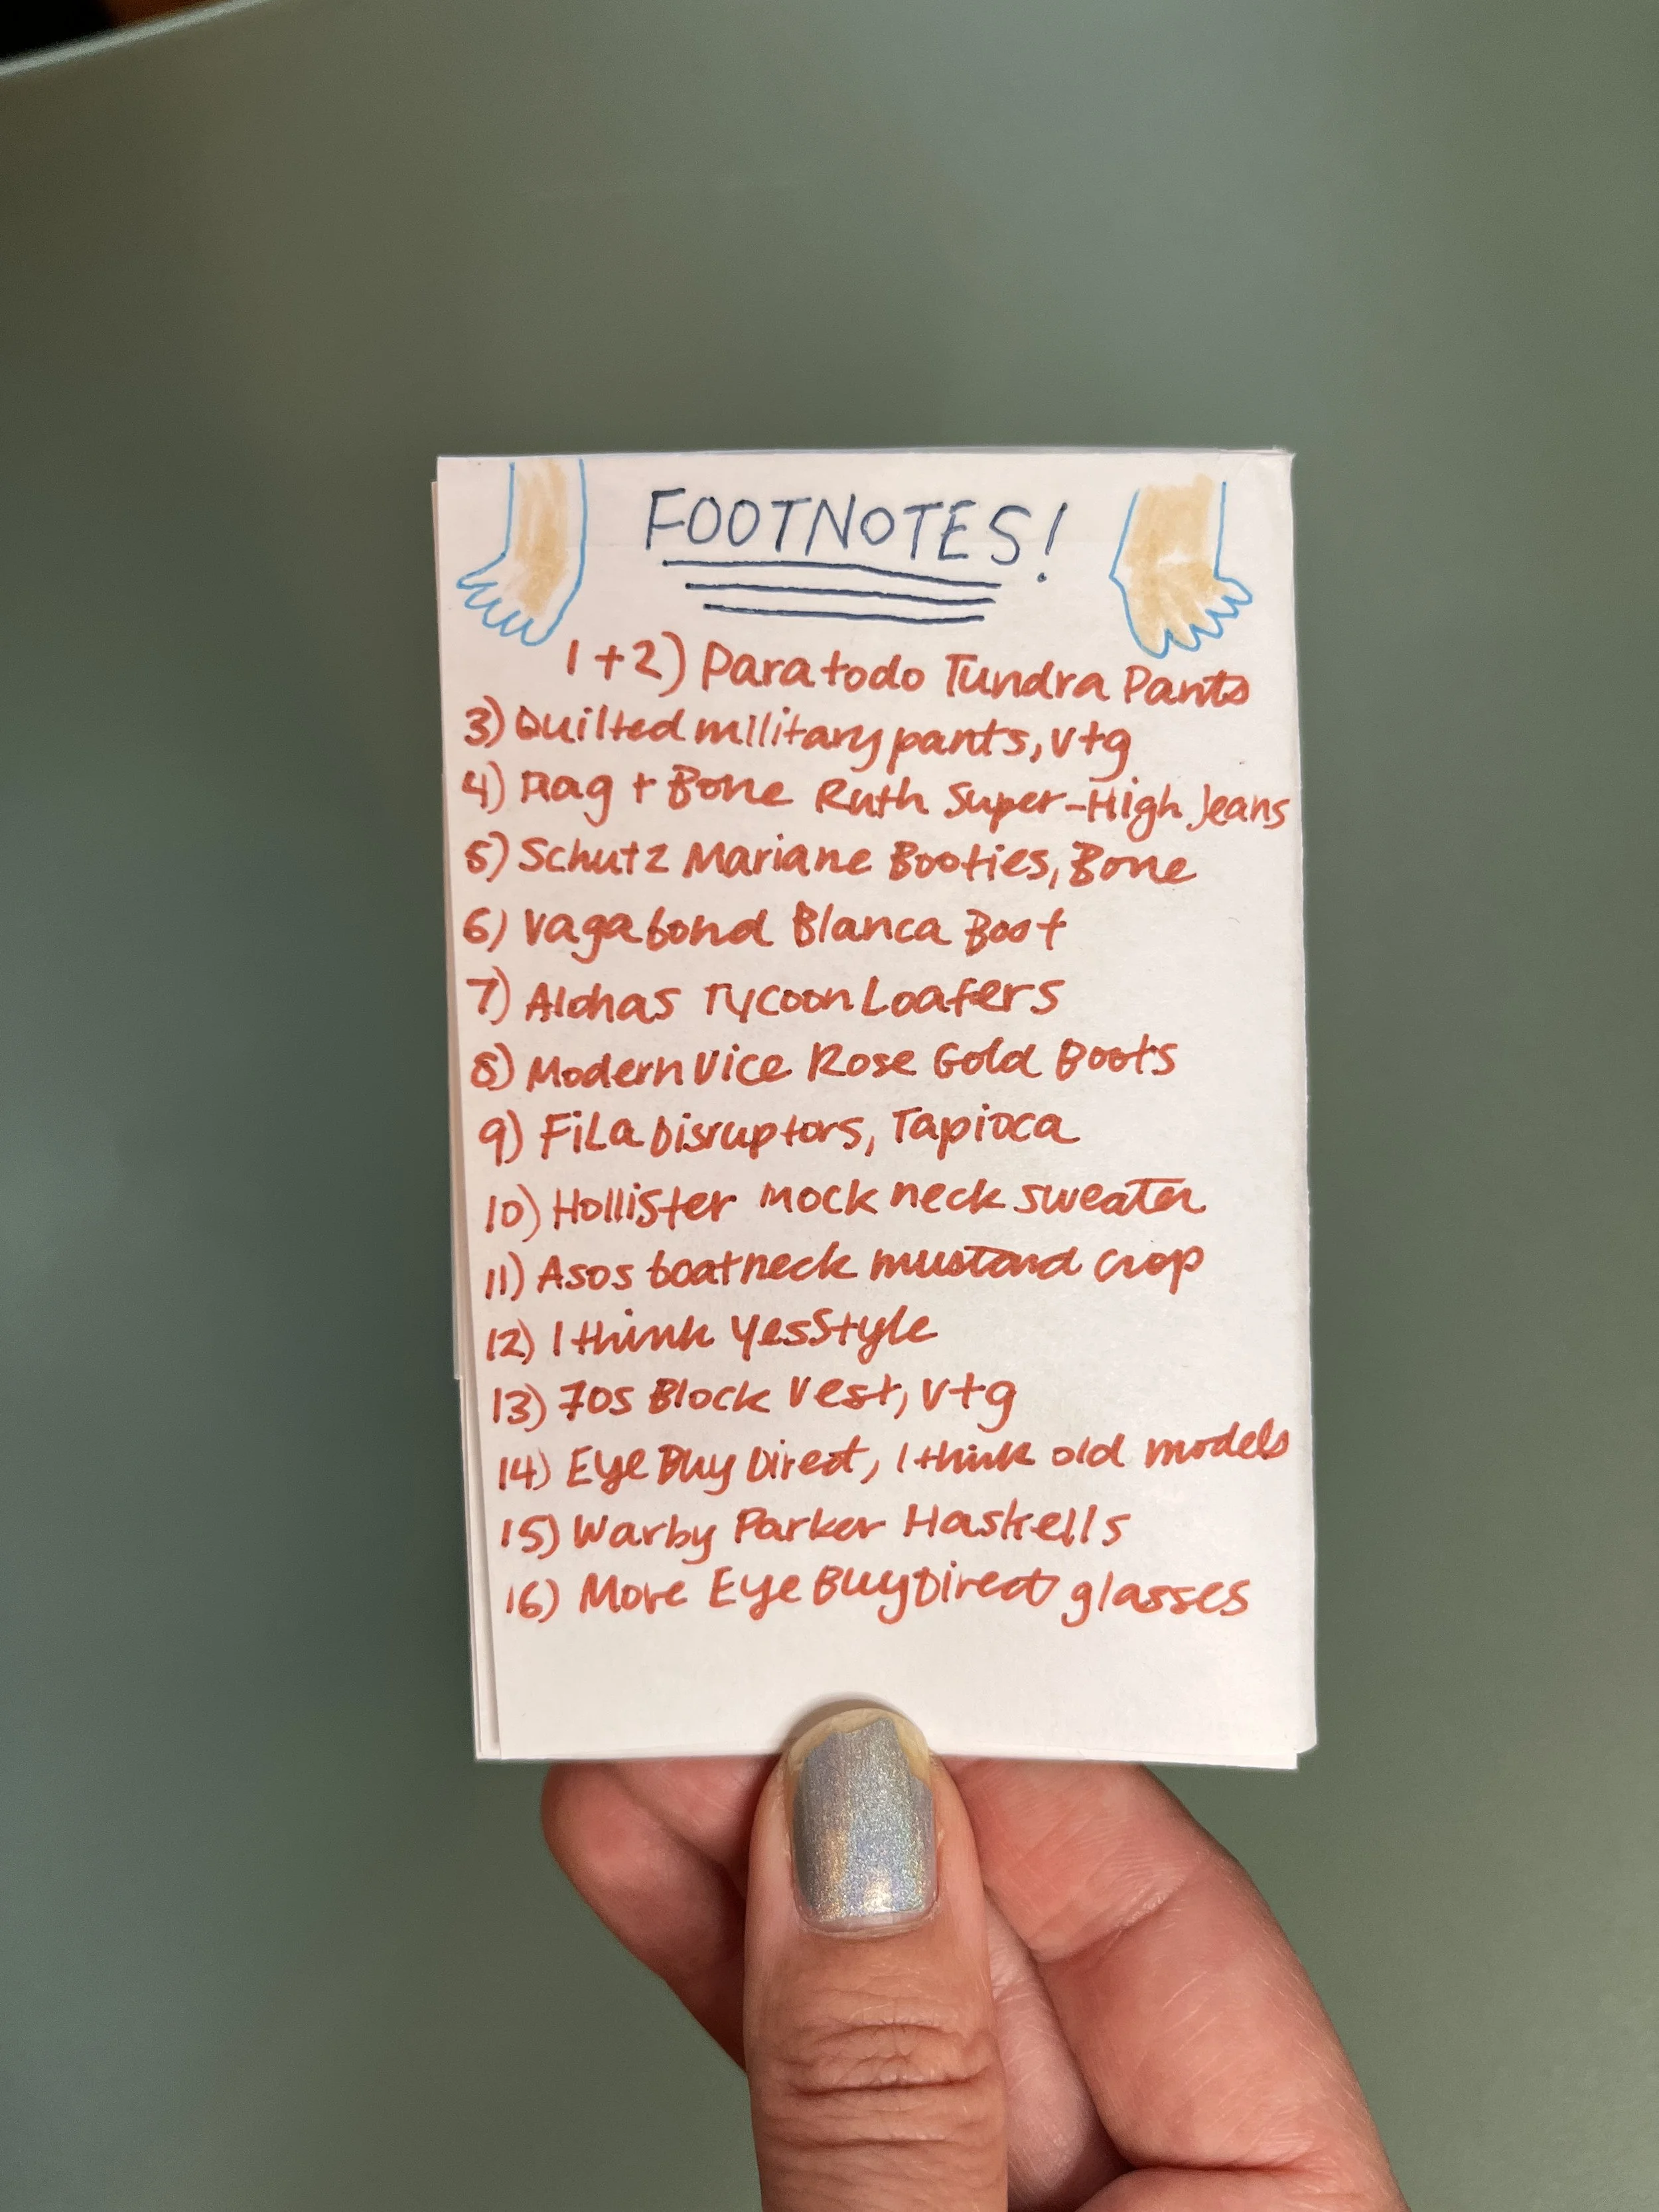 FOOTNOTES!
1+2) Paratodo Tundra Pants
3) Quilted military pants, vtg
4) Rag + Bone Ruth Super-High Jeans
5) Schutz Mariane Booties, Bone
6) Vagabond Blanca Boot
7) Alohas Tycoon Loafers
8) Modern Vice Rose Gold Boots
9) Fila Disruptors, Tapioca
10) Hollister mock neck sweater
11) Asos boatneck mustard crop
12) I think YesStyle
13) 70s Block Vest, vtg
14) Eye Buy Direct, I think old models
15) Warby Parker Haskells
16) More Eye Buy Direct glasses